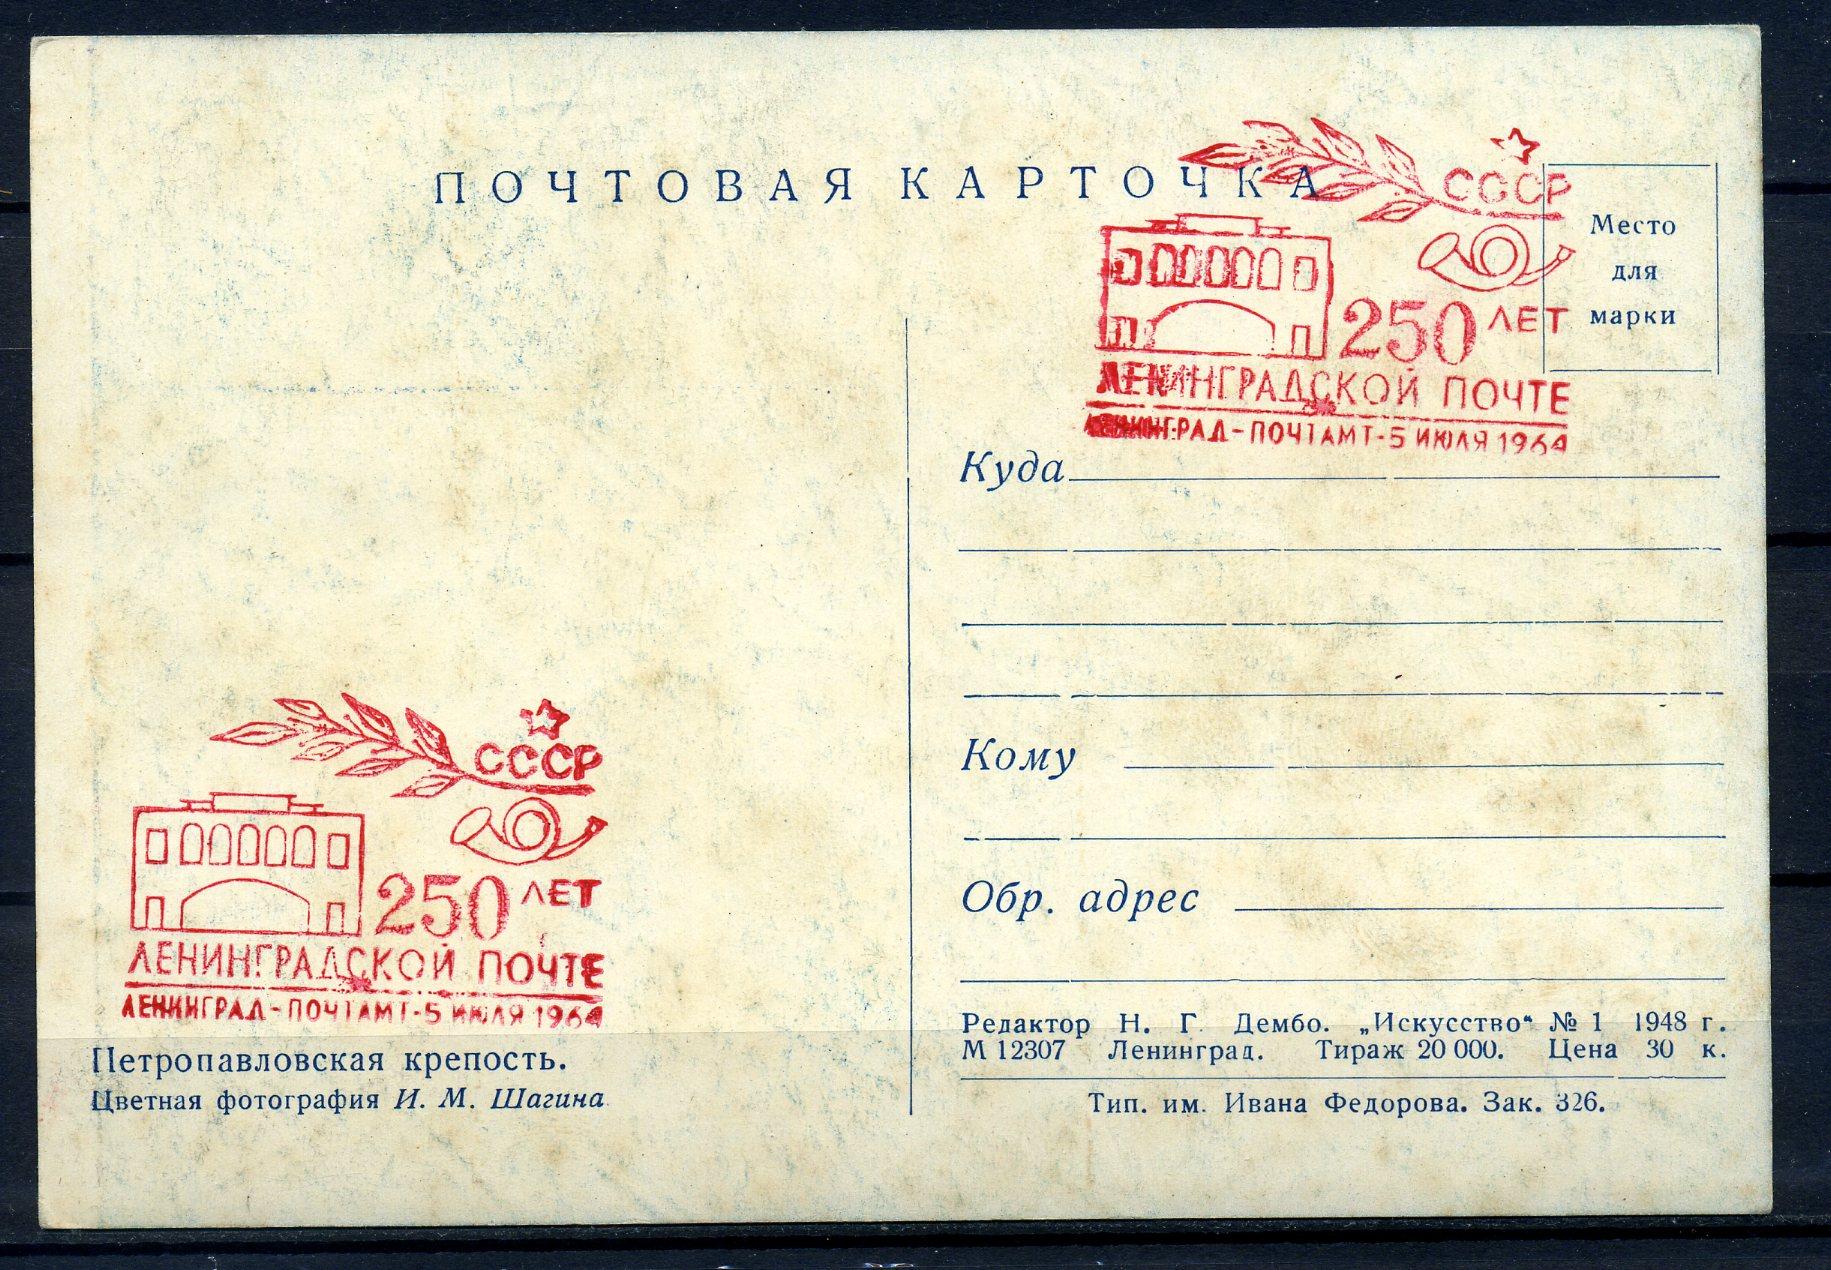 ПОЧТОВАЯ КАРТОЧКА
СССР
250 ЛЕТ
ЛЕНИНГРАДСКОЙ ПОЧТЕ
ЛЕНИНГРАД-ПОЧТАМТ-5 ИЮЛЯ 1964
Место
для
марки
Куда
Кому
Обр. адрес
Редактор Н. Г. Дембо. „Искусство“ № 1 1948 г.
М 12307 Ленинград. Тираж 20 000. Цена 30 к.
Тип. им. Ивана Федорова. Зак. 326.
СССР
250 ЛЕТ
ЛЕНИНГРАДСКОЙ ПОЧТЕ
ЛЕНИНГРАД-ПОЧТАМТ-5 ИЮЛЯ 1964
Петропавловская крепость.
Цветная фотография И. М. Шагина